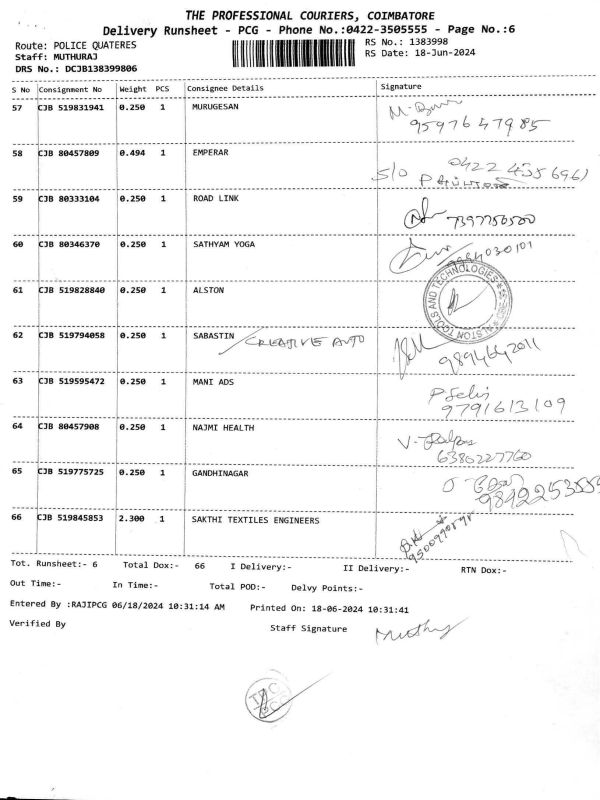 THE PROFESSIONAL COURIERS, COIMBATORE
Delivery Runsheet - PCG - Phone No.:0422-3505555 - Page No.:6
Route: POLICE QUATERES
RS No.: 1383998
Staff: MUTHURAJ
RS Date: 18-Jun-2024
DRS No.: DCJB138399806
S No Consignment No Weight PCS Consignee Details Signature
57 CJB 519831941 0.250 1 MURUGESAN
9597647985
58 CJB 80457809 0.494 1 EMPERAR
S/O 0422 4356961
59 CJB 80333104 0.250 1 ROAD LINK
7397750500
60 CJB 80346370 0.250 1 SATHYAM YOGA
61 CJB 519828840 0.250 1 ALSTON
ALSTON TOOLS AND TECHNOLOGIES
62 CJB 519794058 0.250 1 SABASTIN / CREATIVE AUTO
9894642011
63 CJB 519595472 0.250 1 MANI ADS
P Selvi
9791613109
64 CJB 80457908 0.250 1 NAJMI HEALTH
6380227760
65 CJB 519775725 0.250 1 GANDHINAGAR
66 CJB 519845853 2.300 1 SAKTHI TEXTILES ENGINEERS
Tot. Runsheet:- 6 Total Dox:- 66 I Delivery:- II Delivery:- RTN Dox:-
Out Time:- In Time:- Total POD:- Delvy Points:-
Entered By :RAJIPCG 06/18/2024 10:31:14 AM Printed On: 18-06-2024 10:31:41
Verified By Staff Signature